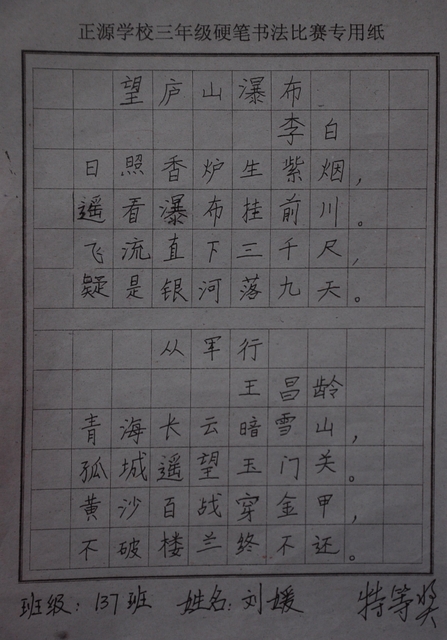 正源学校三年级硬笔书法比赛专用纸
望庐山瀑布
李白
日照香炉生紫烟，
遥看瀑布挂前川。
飞流直下三千尺，
疑是银河落九天。
从军行
王昌龄
青海长云暗雪山，
孤城遥望玉门关。
黄沙百战穿金甲，
不破楼兰终不还。
班级：137班 姓名：刘媛 特等奖